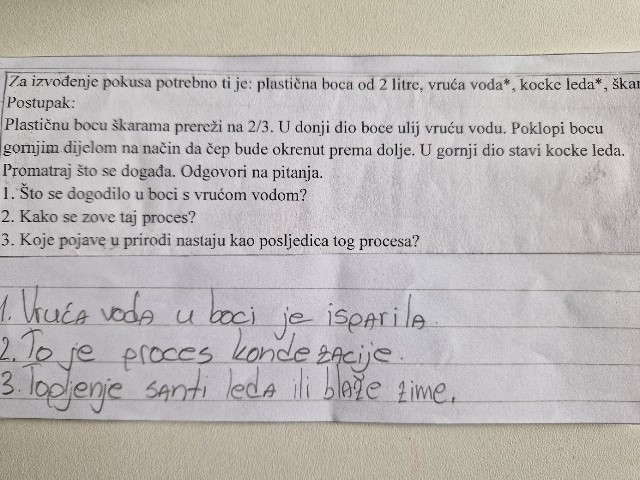 Za izvođenje pokusa potrebno ti je: plastična boca od 2 litre, vruća voda*, kocke leda*, škar
Postupak:
Plastičnu bocu škarama prereži na 2/3. U donji dio boce ulij vruću vodu. Poklopi bocu
gornjim dijelom na način da čep bude okrenut prema dolje. U gornji dio stavi kocke leda.
Promatraj što se događa. Odgovori na pitanja.
1. Što se dogodilo u boci s vrućom vodom?
2. Kako se zove taj proces?
3. Koje pojave u prirodi nastaju kao posljedica tog procesa?
1. Vruća voda u boci je isparila.
2. To je proces kondezacije.
3. Topljenje santi leda ili blaže zime.